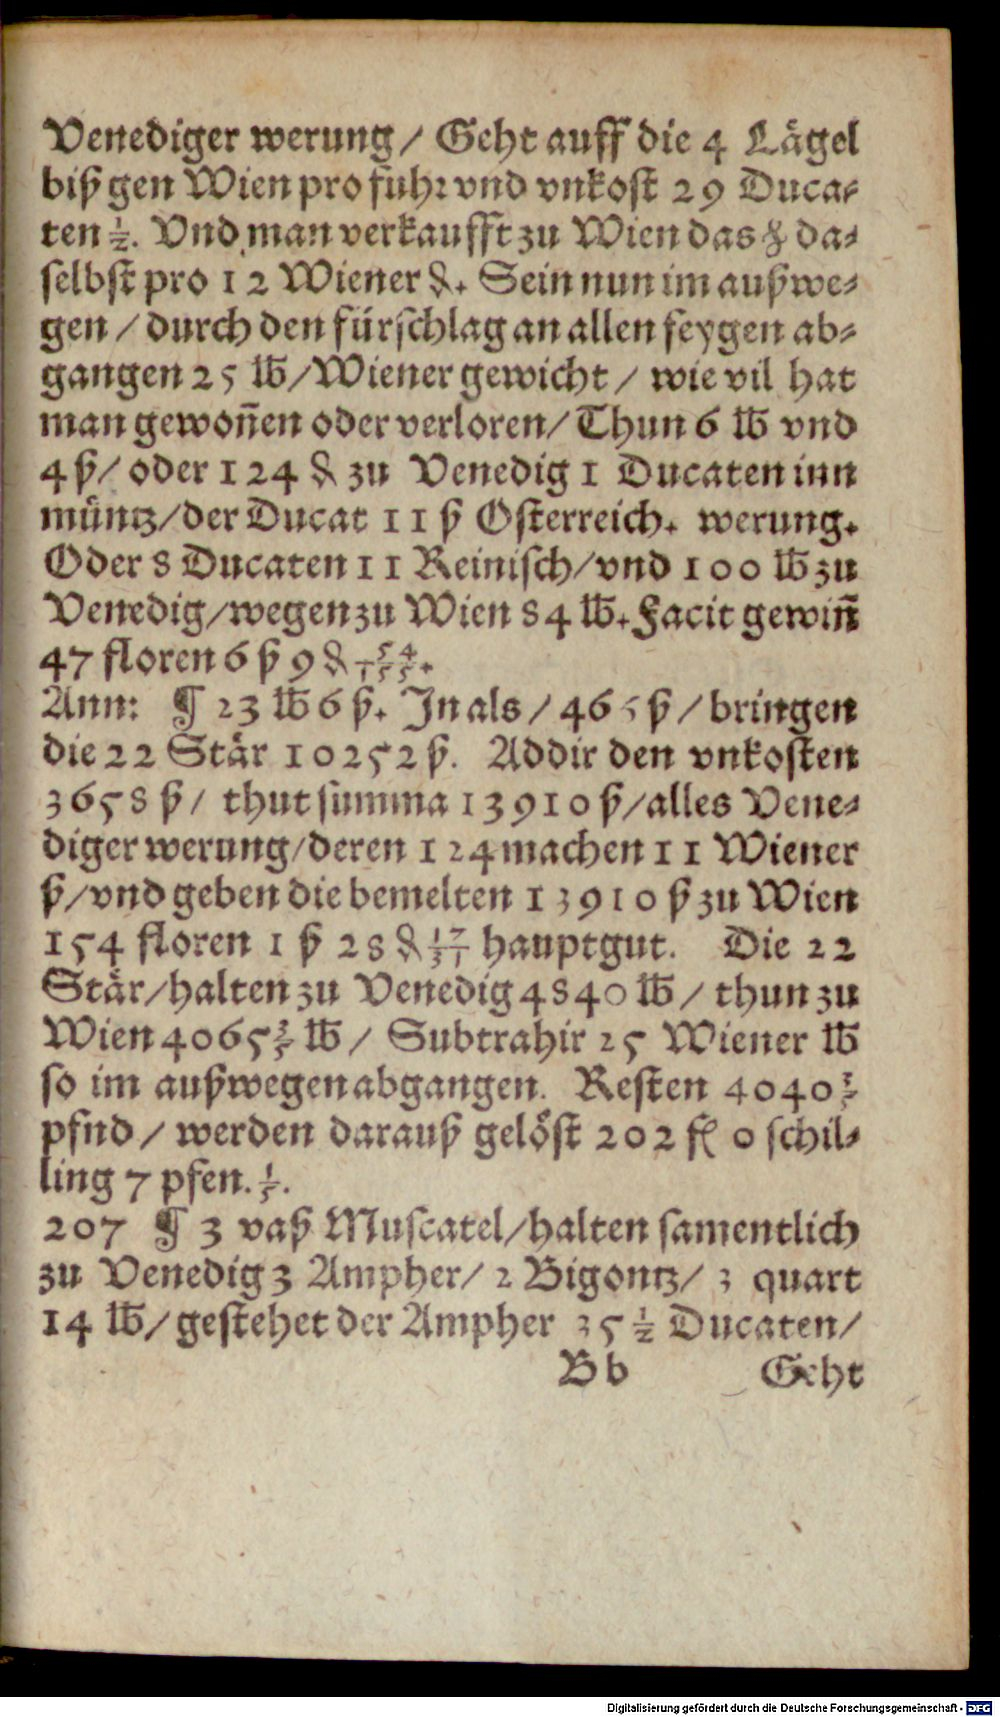 Venediger werung/ Geht auff die 4 Lägel
biß gen Wien pro fuhr vnd vnkost 29 Duca-
ten ½. Vnd man verkaufft zu Wien das ℔ da-
selbst pro 12 Wiener ₰. Sein nun im außwe-
gen/ durch den fürschlag an allen feygen ab-
gangen 25 ℔/Wiener gewicht/ wie vil hat
man gewoñen oder verloren/Thun 6 ℔ vnd
4 ß/ oder 124 ₰ zu Venedig 1 Ducaten inn
müntz/der Ducat 11 ß Osterreich. werung.
Oder 8 Ducaten 11 Reinisch/vnd 100 ℔ zu
Venedig/wegen zu Wien 84 ℔. Facit gewiñ
47 floren 6 ß 9 ₰ 54/155.
Ann: ¶ 23 ℔ 6 ß. In als/ 465 ß/ bringen
die 22 Stär 10252 ß. Addir den vnkosten
3658 ß/ thut summa 13910 ß/alles Vene-
diger werung/deren 124 machen 11 Wiener
ß/vnd geben die bemelten 13910 ß zu Wien
154 floren 1 ß 28 ₰ 17/31 hauptgut. Die 22
Stär/halten zu Venedig 4840 ℔/ thun zu
Wien 4065 3/5 ℔/ Subtrahir 25 Wiener ℔
so im außwegen abgangen. Resten 4040 3/5
pfnd/ werden darauß gelöst 202 fl 0 schil-
ling 7 pfen. 1/5.
207 ¶ 3 vaß Muscatel/halten samentlich
zu Venedig 3 Ampher/ 2 Bigontz/ 3 quart
14 ℔/gestehet der Ampher 35 ½ Ducaten/
Bb Geht
Digitalisierung gefördert durch die Deutsche Forschungsgemeinschaft - DFG